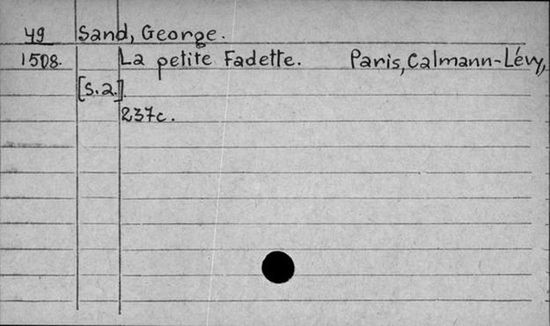 49 Sand, George.
1508. La petite Fadette. Paris, Calmann-Lévy,
[s.a.].
237c.